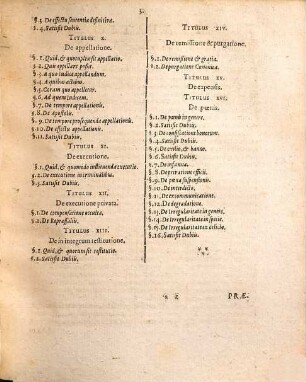 §. 3. De effectu sententiæ definitivæ.
§. 4. Satisfit Dubiis.
TITULUS X.
De appellatione.
§. 1. Quid, & quotuplex sit appellatio.
§. 2. Quis appellare possit.
§. 3. A quo iudice appellandum.
§. 4. A quibus actibus.
§. 5. Coram quo appelletur.
§. 6. Ad quem iudicem.
§. 7. De tempore appellationis.
§. 8. De Apostolis.
§. 9. De tempore prosequendæ appellationis.
§. 10. De effectu appellationis.
§. 11. Satisfit Dubiis.
TITULUS XI.
De executione.
§. 1. Quid, & quomodo instituenda executio.
§. 2. De executione in criminalibus.
§. 3. Satisfit Dubiis.
TITULUS XII.
De executione privata.
§. 1. De compensatione occulta.
§. 2. De Repressaliis.
TITULUS XIII.
De in integrum restitutione.
§. 1. Quid, & quorum sit restitutio.
§. 2. Satisfit Dubiis.
TITULUS XIV.
De remissione & purgatione.
§. 1. De remissione & gratia.
§. 2. De purgatione Canonica.
TITULUS XV.
De expensis.
TITULUS XVI.
De pœnis.
§. 1. De pœnis in genere.
§. 2. Satisfit Dubiis.
§. 3. De confiscatione bonorum.
§. 4. Satisfit Dubiis.
§. 5. De exilio, & banno.
§. 6. Satisfit Dubiis.
§. 7. De infamia.
§. 8. De privatione officii.
§. 9. De pœna suspensionis.
§. 10. De interdicto.
§. 11. De excommunicatione.
§. 12. De degradatione.
§. 13. De irregularitate in genere,
§. 14. De irregularitate in specie.
§. 15. De irregularitate ex delicto.
§. 16. Satisfit Dubiis.
PRÆ-